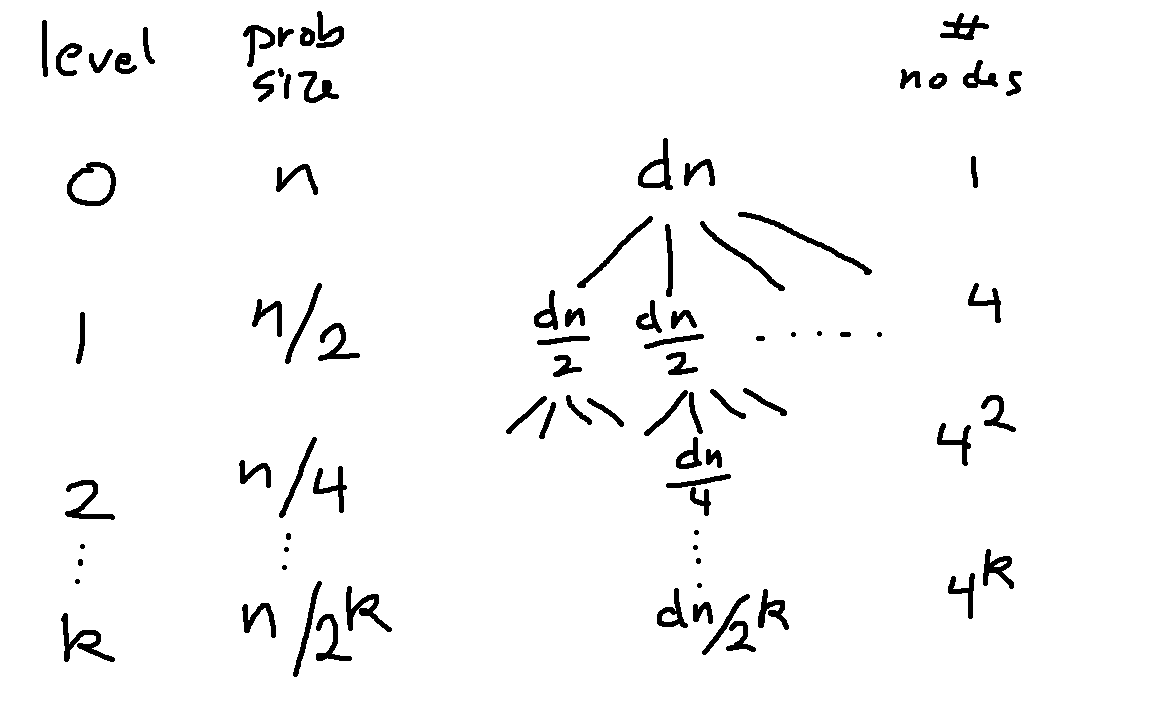 level prob size # nodes
0 n dn 1
1 n/2 dn/2 dn/2 ..... 4
2 n/4 dn/4 4^2
⋮ ⋮ ⋮
k n/2^k dn/2^k 4^k